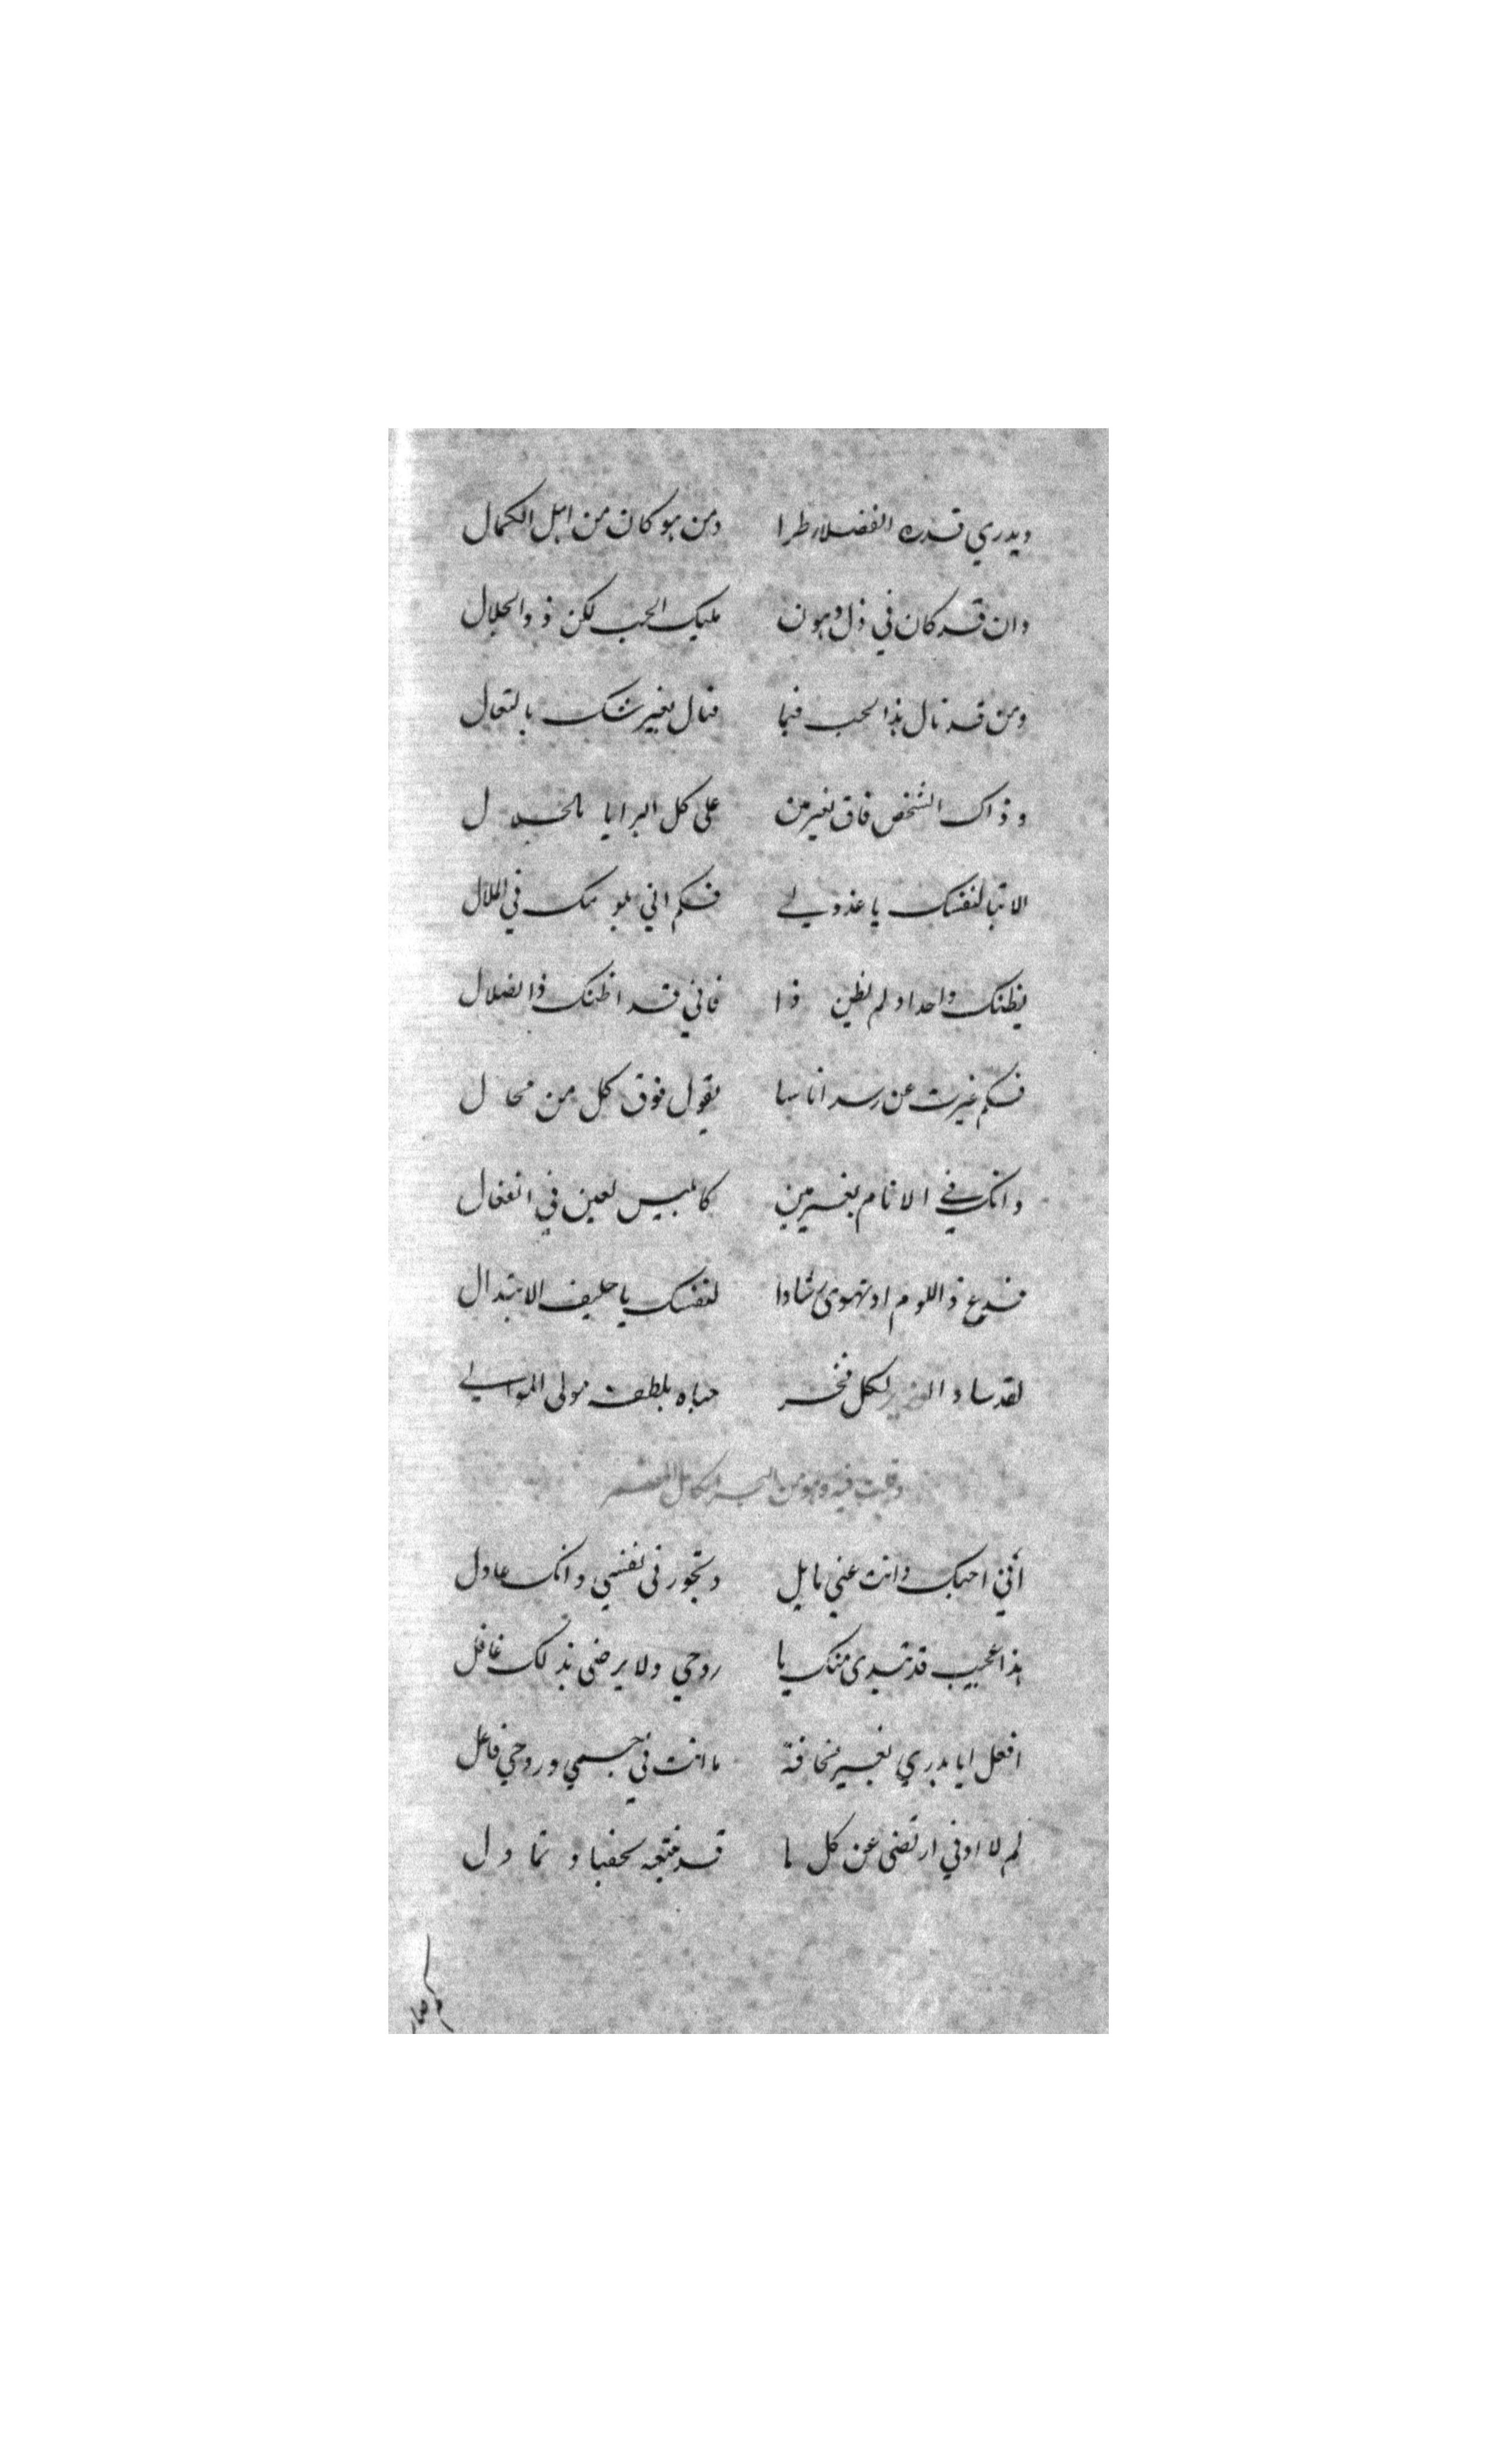 ويدري قدره الفضلاء طرا ومن هو كان من اهل الكمال
وان قد كان في ذل وهون مليك الحب لكن ذو الجلال
ومن قد نال هذا الحب فيما فنال بغير شك بالتعال
وذاك الشخص فاق بغير من على كل البرايا بالخلال
الا تبا لنفسك يا عذولي فكم اني بلومك في الملال
يظنك واحد اولم يظن ذا فاني قد اظنك ذا ضلال
فكم غيرت عن رسد اناسا بقول فوق كل من محال
وانك في الانام بغير مين كابليس لعين في انفعال
فدع ذا اللوم او تهوى رشادا لنفسك يا حليف الابتذال
لقد ساد لكل فخر حباه بلطفه مولى الموالي
وقلت فيه وهو من البحر الكامل
أني احبك وانت عني مايل وتجور في نفسي وانك عادل
هذا عجيب قد تبدى منك يا روحي ولا يرضى بذلك غافل
افعل ايا بدري بغير مخافة ما انت في جسمي وروحي فاعل
لم لا اوفي ارتضى عن كل ما قد